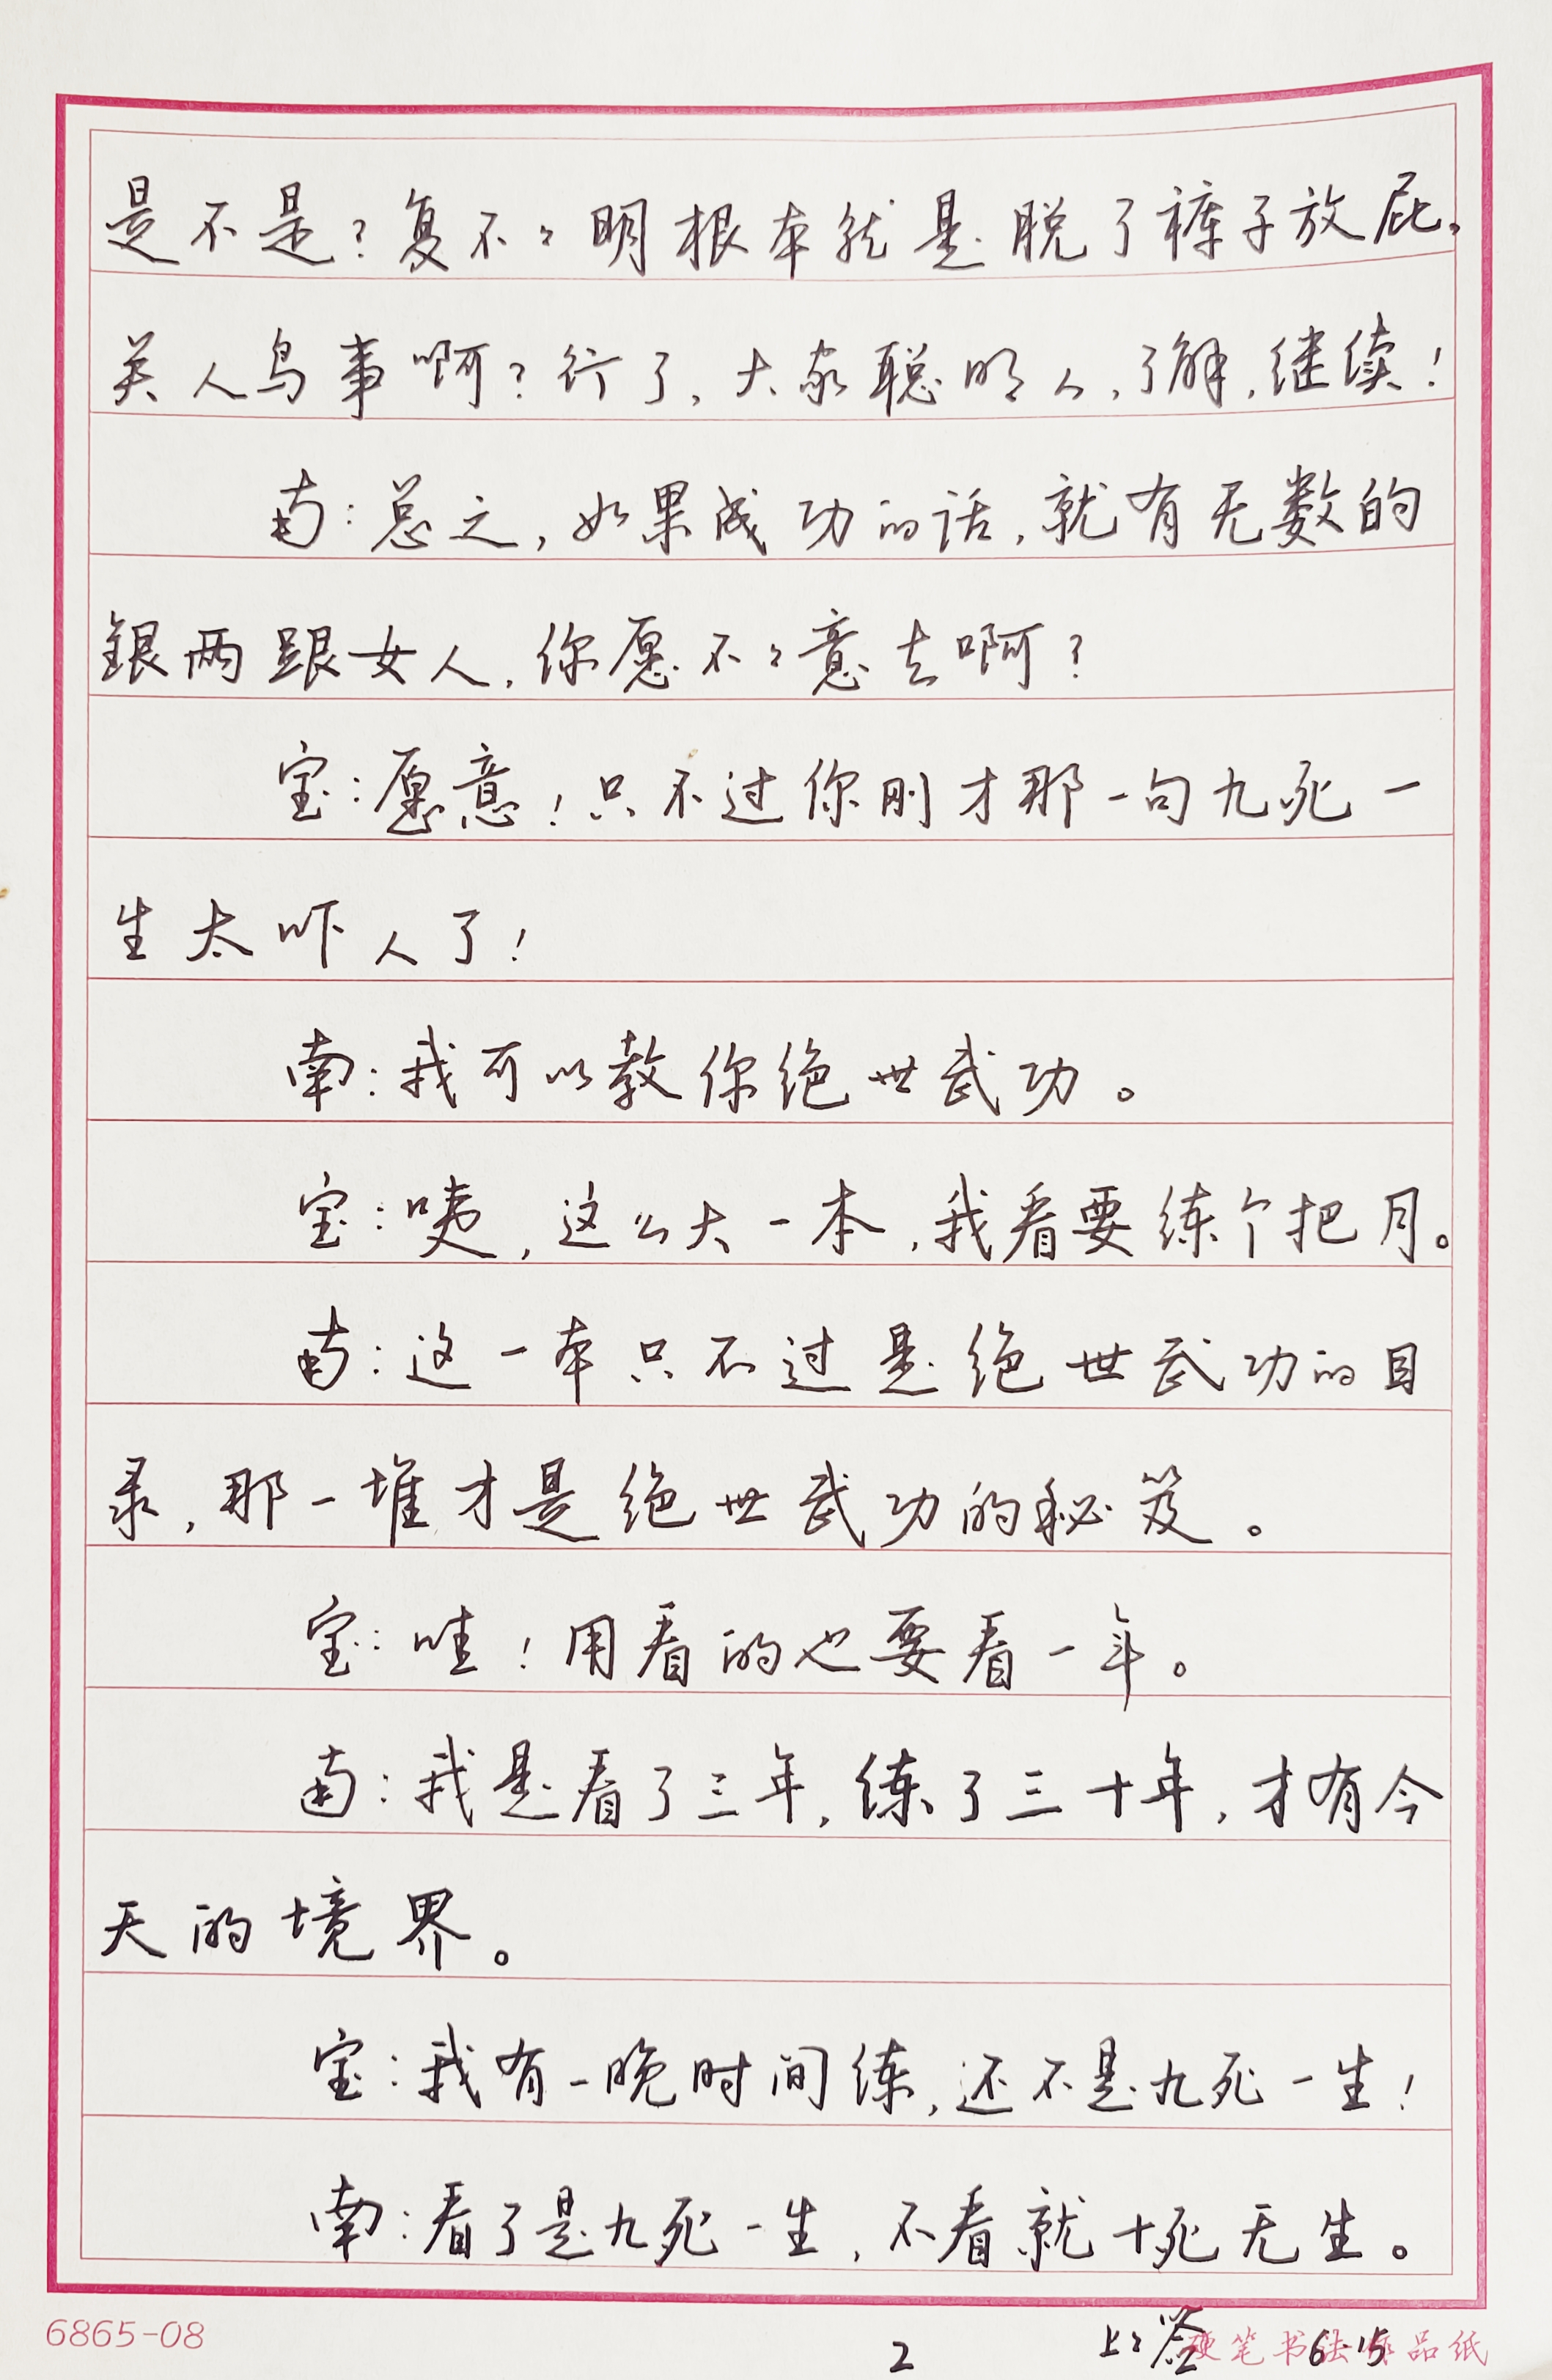 是不是？复不々明根本就是脱了裤子放屁。
关人鸟事啊？行了，大家聪明人，了解，继续！
南：总之，如果成功的话，就有无数的
銀两跟女人，你愿不々意去啊？
宝：愿意！只不过你刚才那一句九死一
生太吓人了！
南：我可以教你绝世武功。
宝：咦，这么大一本，我看要练个把月。
南：这一本只不过是绝世武功的目
录，那一堆才是绝世武功的秘笈。
宝：哇！用看的也要看一年。
南：我是看了三年，练了三十年，才有今
天的境界。
宝：我有一晚时间练，还不是九死一生！
南：看了是九死一生，不看就十死无生。
6865-08
2
上々签
6.15
硬笔书法作品纸